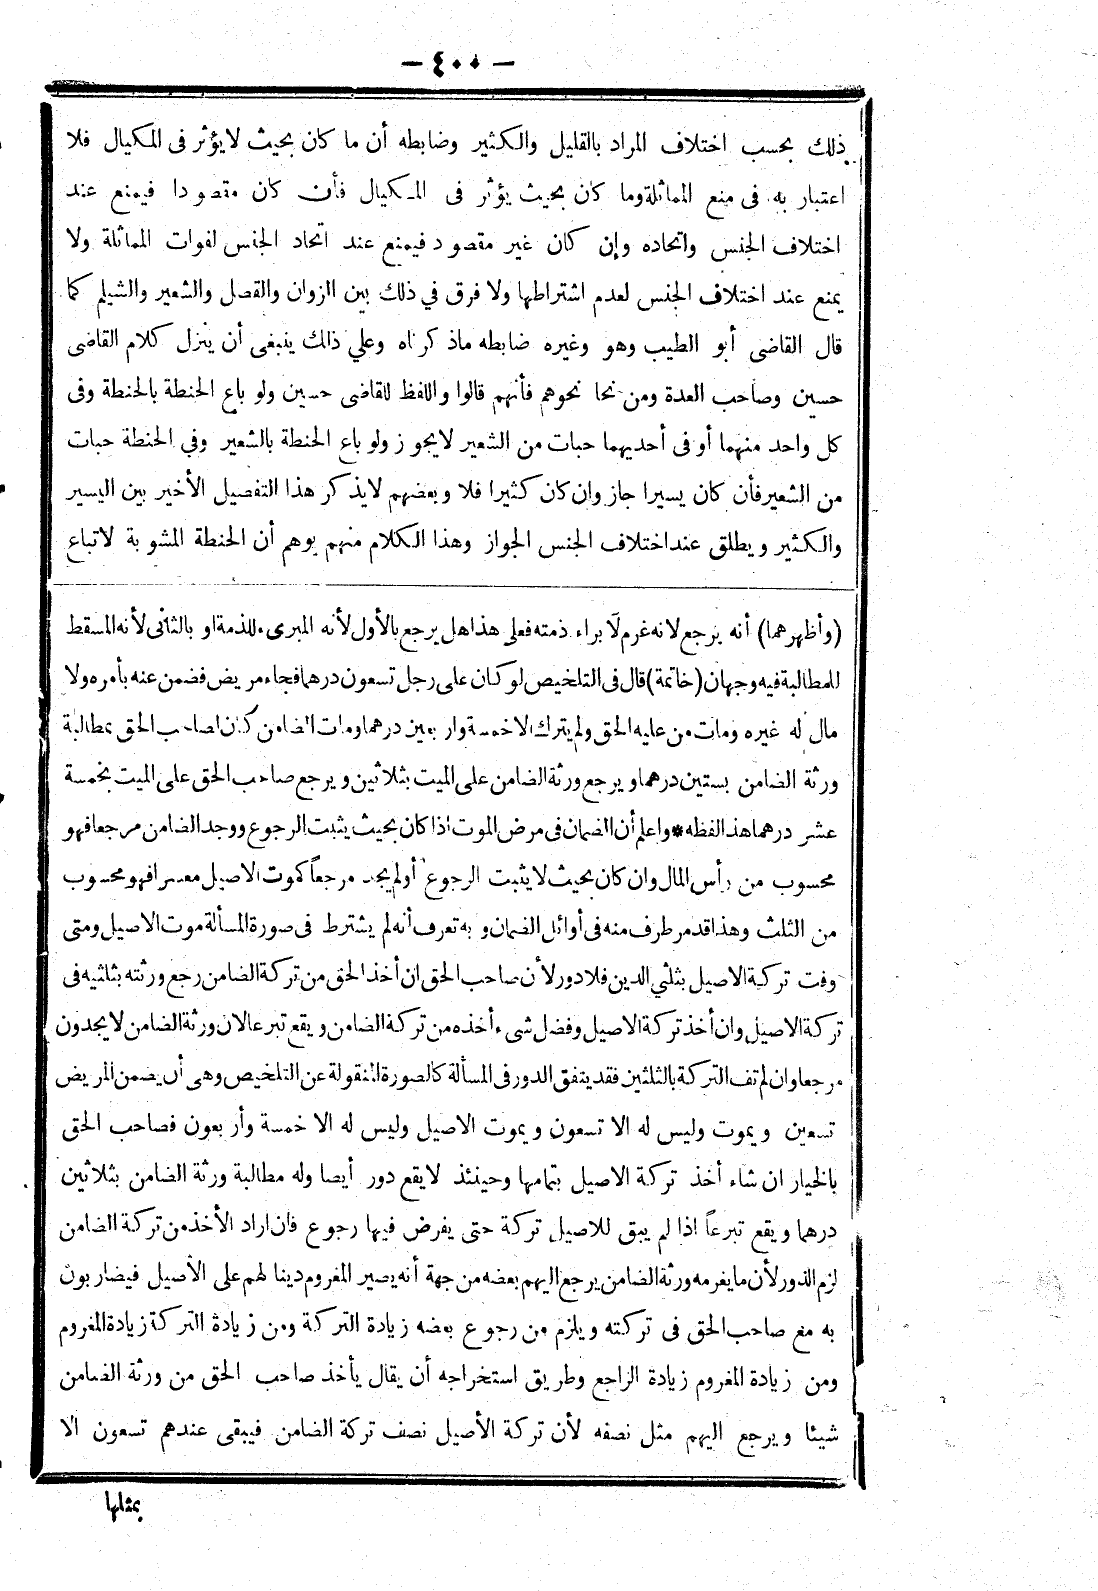 — ٤٠٠ —
ذلك بحسب اختلاف المراد بالقليل والكثير وضابطه أن ما كان بحيث لايؤثر فى المكيال فلا
اعتبار به فى منع المماثلة وما كان بحيث يؤثر فى المكيال فأن كان مقصودا فيمنع عند
اختلاف الجنس واتحاده وإن كان غير مقصود فيمنع عند اتحاد الجنس لفوات المماثلة ولا
يمنع عند اختلاف الجنس لعدم اشتراطها ولا فرق في ذلك بين الزوان والقصل والشعير والشيلم كما
قال القاضى أبو الطيب وهو وغيره ضابطه ماذكرناه وعلي ذالك ينبغى أن ينزل كلام القاضى
حسين وصاحب العدة ومن نحا نحوهم فأنهم قالوا واللفظ للقاضى حسين ولو باع الحنطة بالحنطة وفى
كل واحد منهما أو فى أحديهما حبات من الشعير لايجوز ولو باع الحنطة بالشعير وفي الحنطة حبات
من الشعير فأن كان يسيرا جاز وان كان كثيرا فلا وبعضهم لايذكر هذا التفصيل الأخير بين اليسير
والكثير ويطلق عند اختلاف الجنس الجواز وهذا الكلام منهم يوهم أن الحنطة المشوبة لاتباع
(وأظهرهما) أنه يرجع لانه غرم لابراء ذمته فعلى هذا هل يرجع بالأول لأنه المبرىء للذمة او بالثانى لأنه المسقط
للمطالبة فيه وجهان (خاتمة) قال فى التلخيص لو كان على رجل تسعون درهما فجاء مريض فضمن عنه بأمره ولا
مال له غيره ومات من عليه الحق ولم يترك الا خمسة واربعين درهما ومات الضامن كان لصاحب الحق مطالبة
ورثة الضامن بستين درهما ويرجع ورثة الضامن على الميت بثلاثين ويرجع صاحب الحق على الميت بخمسة
عشر درهما هذا لفظه * واعلم أن الضمان فى مرض الموت اذا كان بحيث يثبت الرجوع ووجد الضامن مرجعا فهو
محسوب من رأس المال وان كان بحيث لا يثبت الرجوع أو لم يجد مرجعاً كموت الاصيل معسرا فهو محسوب
من الثلث وهذا قد مر طرف منه فى أوائل الضمان وبه تعرف أنه لم يشترط فى صورة المسألة موت الاصيل ومتى
وفت تركة الاصيل بثلثي الدين فلا دور لأن صاحب الحق ان أخذ الحق من تركة الضامن رجع ورثته بثلثيه فى
تركة الاصيل وان أخذ تركة الاصيل وفضل شىء أخذه من تركة الضامن ويقع تبرعا لان ورثة الضامن لا يجدون
مرجعا وان لم تف التركة بالثلثين فقد يتفق الدور فى المسألة كالصورة المنقولة عن التلخيص وهى أن يضمن المريض
تسعين ويموت وليس له الا تسعون ويموت الاصيل وليس له الا خمسة وأربعون فصاحب الحق
بالخيار ان شاء أخذ تركة الاصيل بتمامها وحينئذ لايقع دور أيضا وله مطالبة ورثة الضامن بثلاثين
درهما ويقع تبرعاً اذا لم يبق للاصيل تركة حتى يفرض فيها رجوع فان اراد الأخذ من تركة الضامن
لزم الدور لأن ما يغرمه ورثة الضامن يرجع اليهم بعضه من جهة أنه يصير المغروم دينا لهم على الأصيل فيضاربون
به مع صاحب الحق فى تركته ويلزم من رجوع بعضه زيادة التركة ومن زيادة التركة زيادة المغروم
ومن زيادة المغروم زيادة الراجع وطريق استخراجه أن يقال يأخذ صاحب الحق من ورثة الضامن
شيئا ويرجع اليهم مثل نصفه لأن تركة الأصيل نصف تركة الضامن فيبقى عندهم تسعون الا
بمثلها